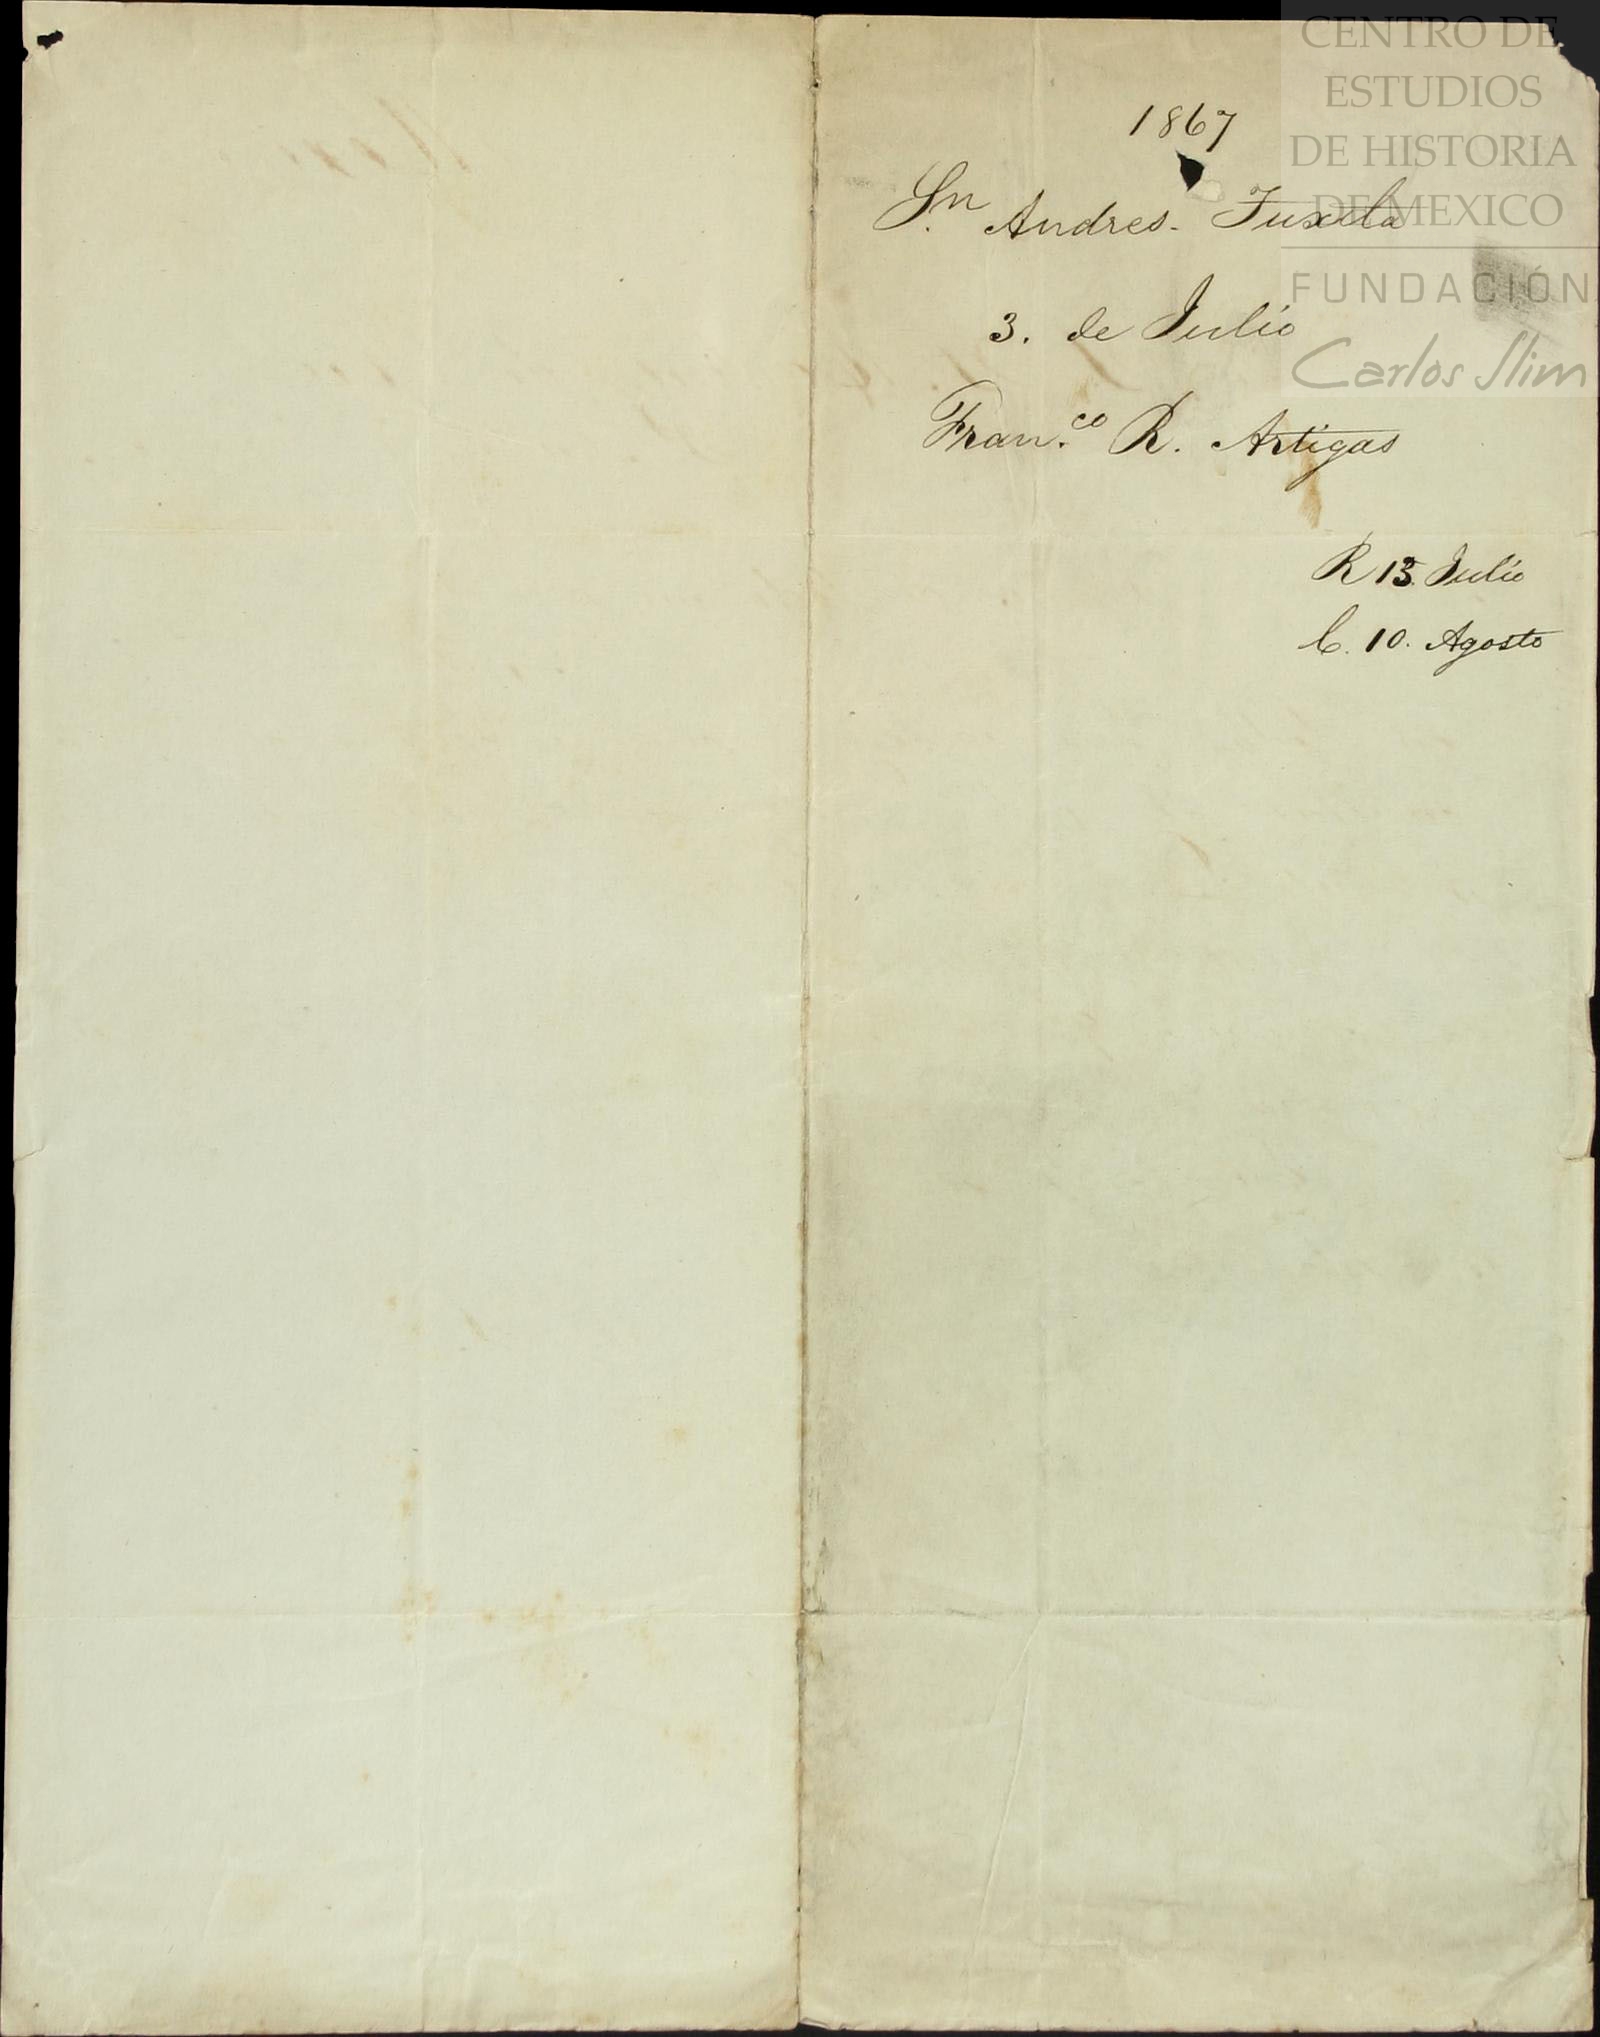 1867
Sn. Andres. Tuxtla
3. de Julio
Fran.co R. Artigas
R 13. Julio
C. 10. Agosto
CENTRO DE
ESTUDIOS
DE HISTORIA
DE MEXICO
FUNDACIÓN
Carlos Slim